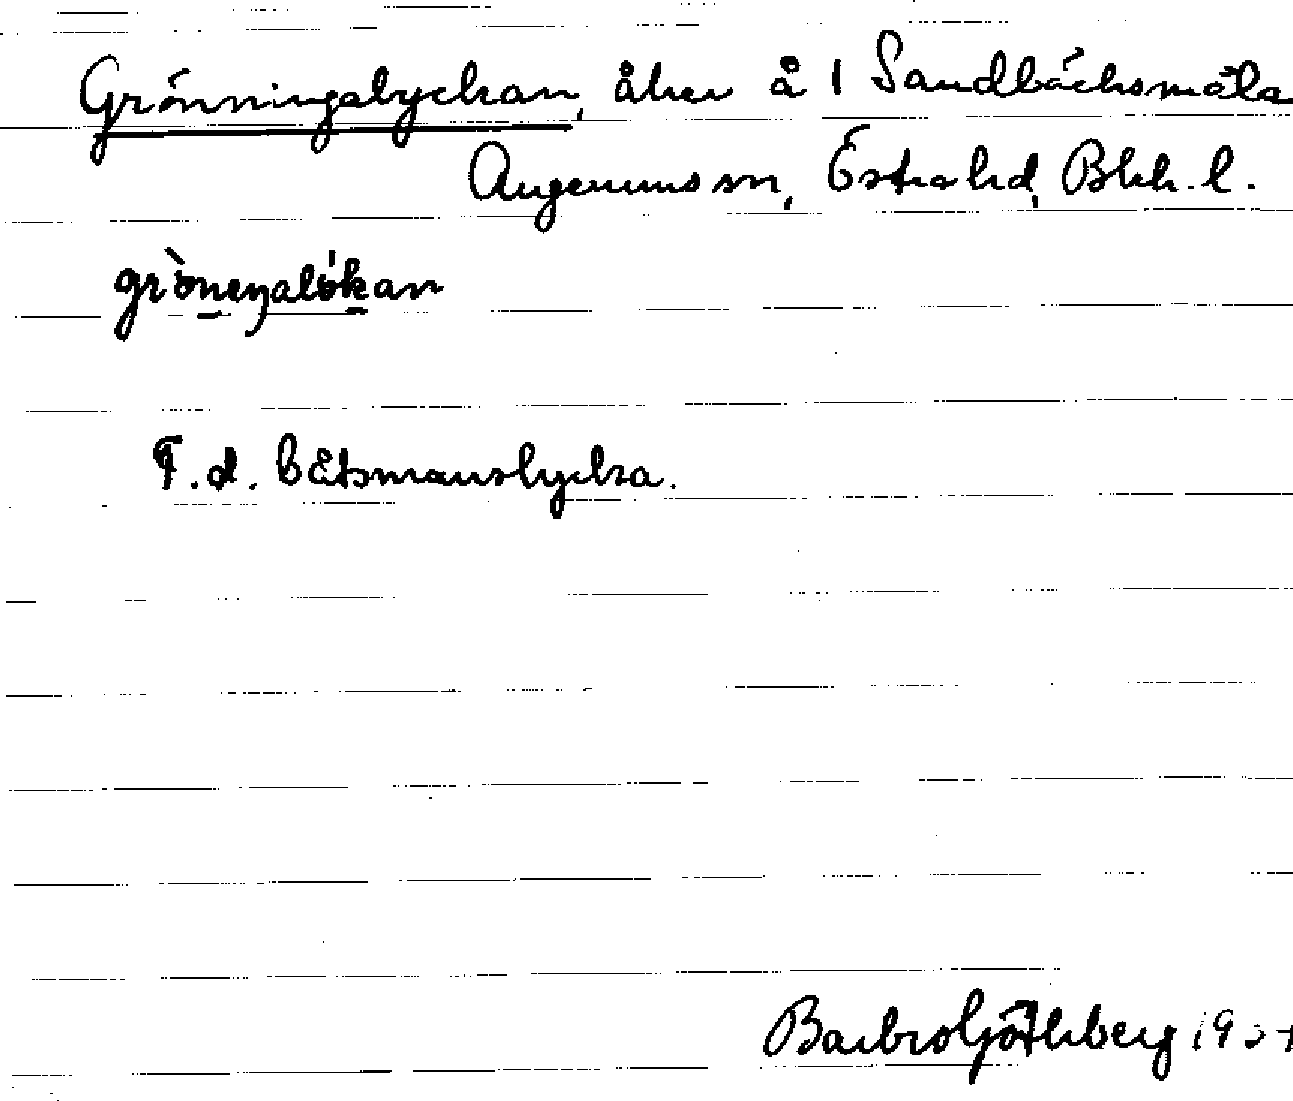 Grönningalyckan, åker å 1 Sandbäcksmåla
Augerums sn, Östra hd, Blek. l.
gròneŋalỳkan
F.d. båtsmanslycka.
Barbro Götherberg